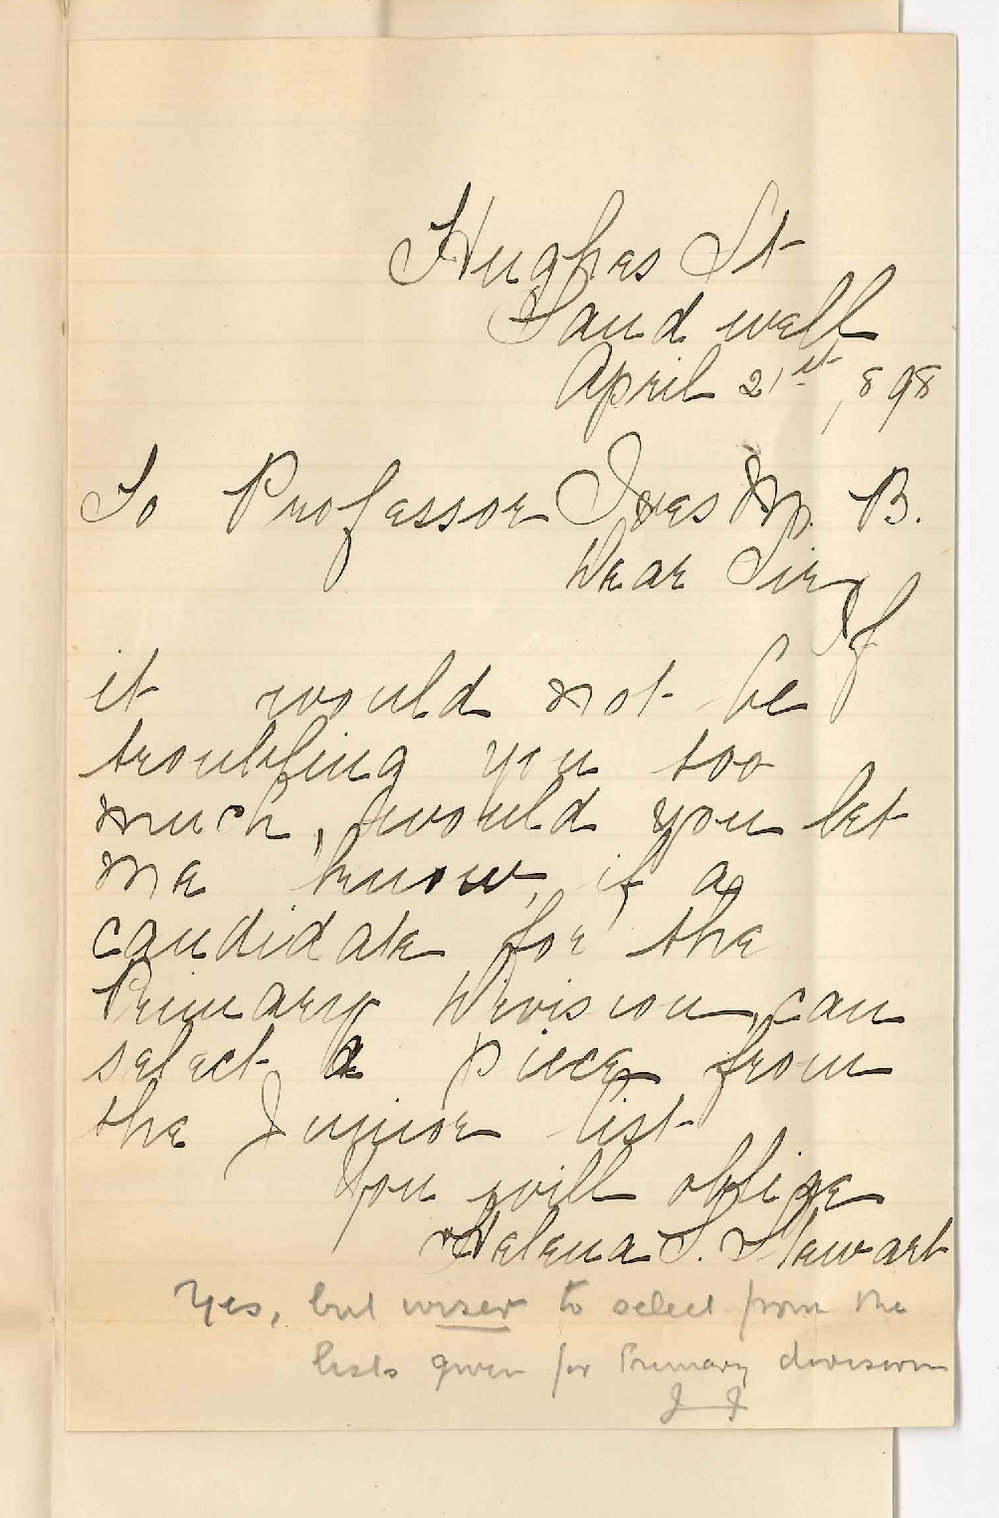 Hughes St
Sandwell
April 21st, 898
To Professor Ives M. B.
Dear Sir,
If
it would not be
troubling you too
much, would you let
me know, if a
candidate for the
Primary Division, can
select a piece from
the Junior list
You will oblige
Helena S. Stewart
Yes, but wiser to select from the
lists given for Primary division
J I